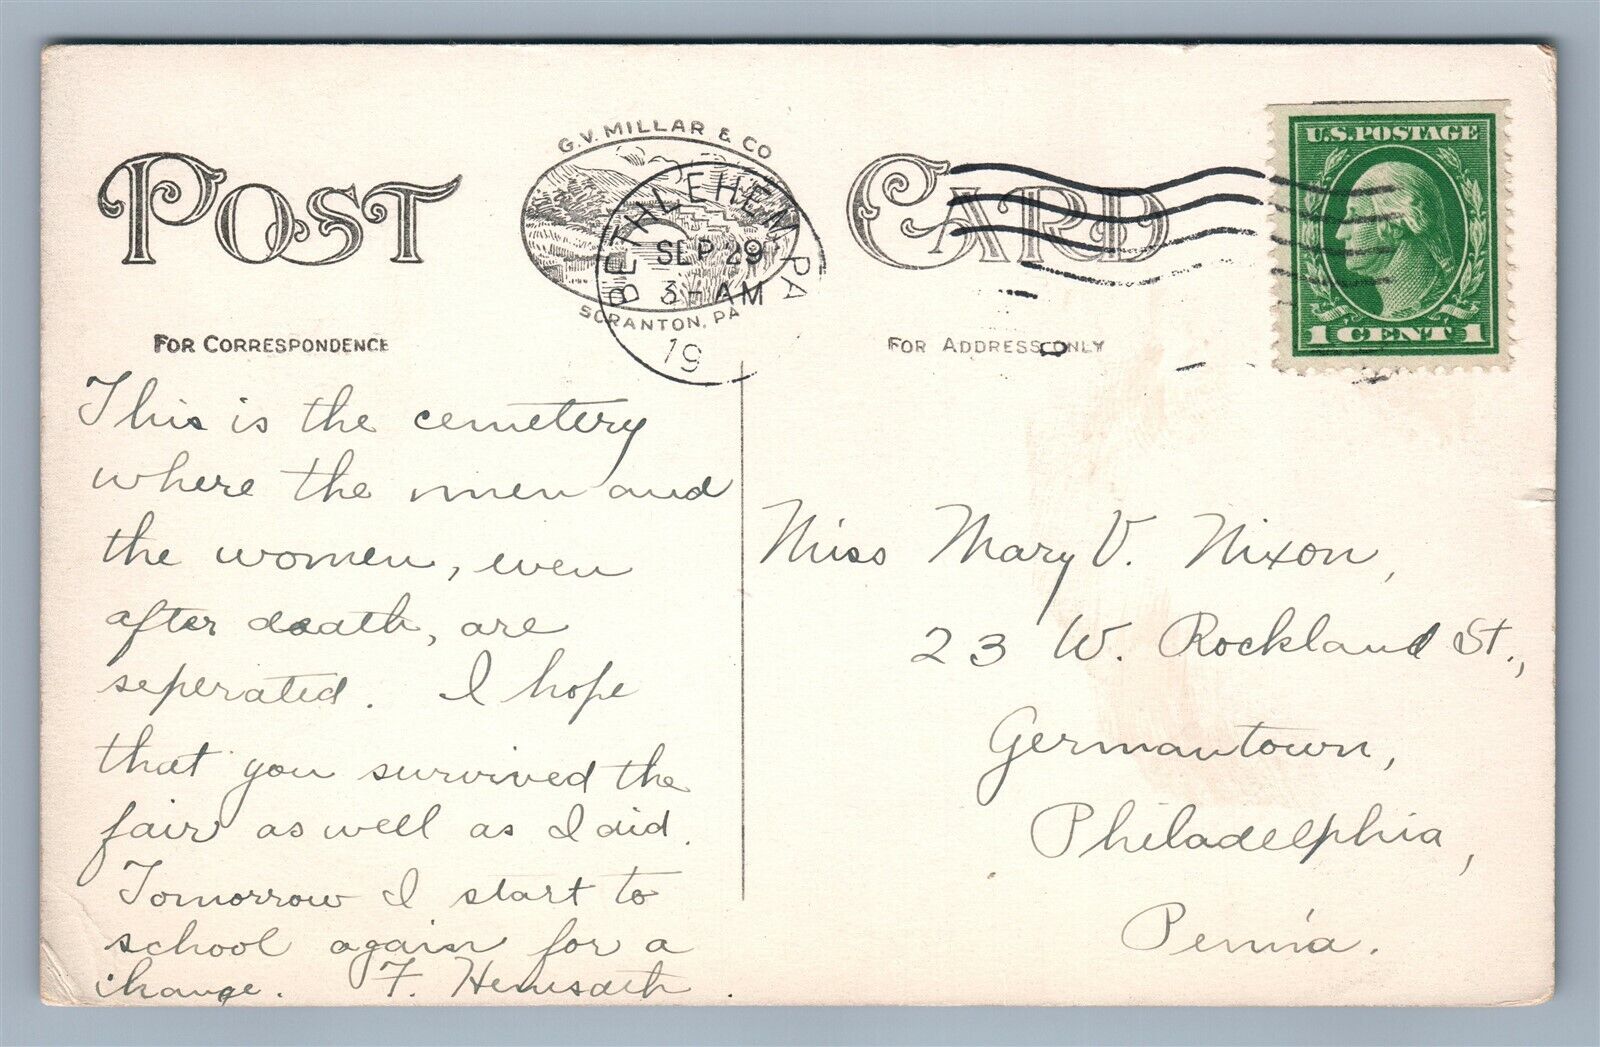 POST CARD
G.V. MILLAR & CO
SCRANTON, PA
BETHLEHEM, PA
SEP 29
3-AM
19
U.S. POSTAGE
1 CENT 1
FOR CORRESPONDENCE
FOR ADDRESS ONLY
This is the cemetery
where the men and
the women, even
after death, are
seperated. I hope
that you survived the
fair as well as I did.
Tomorrow I start to
school again for a
change. F.
Miss Mary V. Nixon,
23 W. Rockland St.,
Germantown,
Philadelphia,
Penn'a.